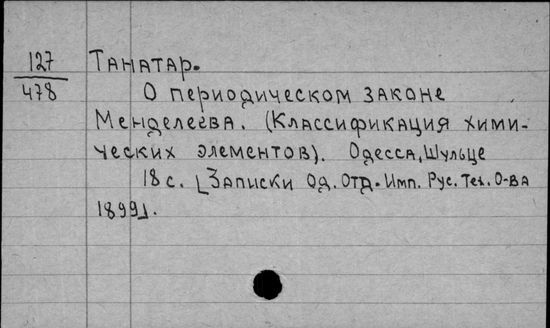 127
478
Танатар.
О периодическом законе
Менделеева. (Классификация хими-
ческих элементов). Одесса, Шульце
18 с. [Записки Од. Отд. Имп. Рус. Тех. О-ва
1899].